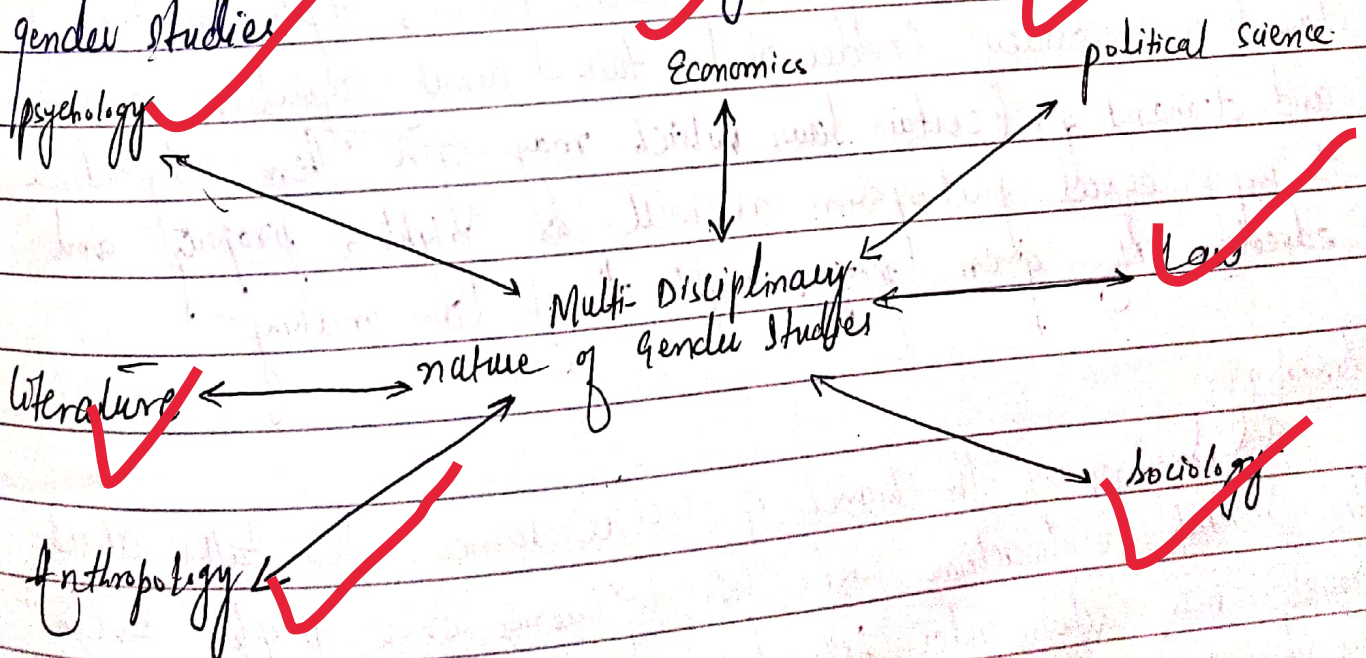 gender studies
Economics
political science.
psychology
Multi-Disciplinary
Law
nature of Gender Studies
literature
sociology
Anthropology